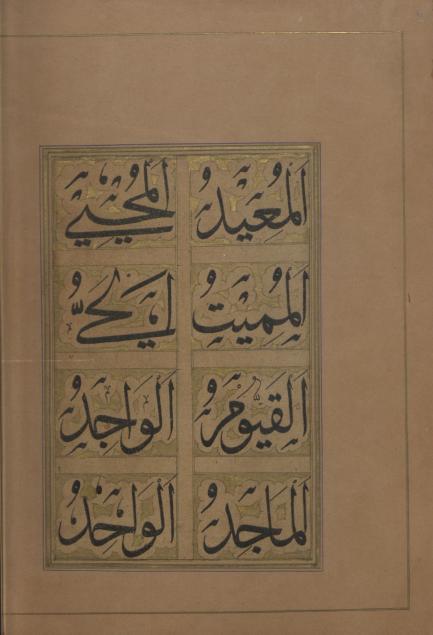 المُعِيدُ المُحْيِي
المُمِيتُ الحَيُّ
القَيُّومُ الوَاجِدُ
المَاجِدُ الوَاحِدُ